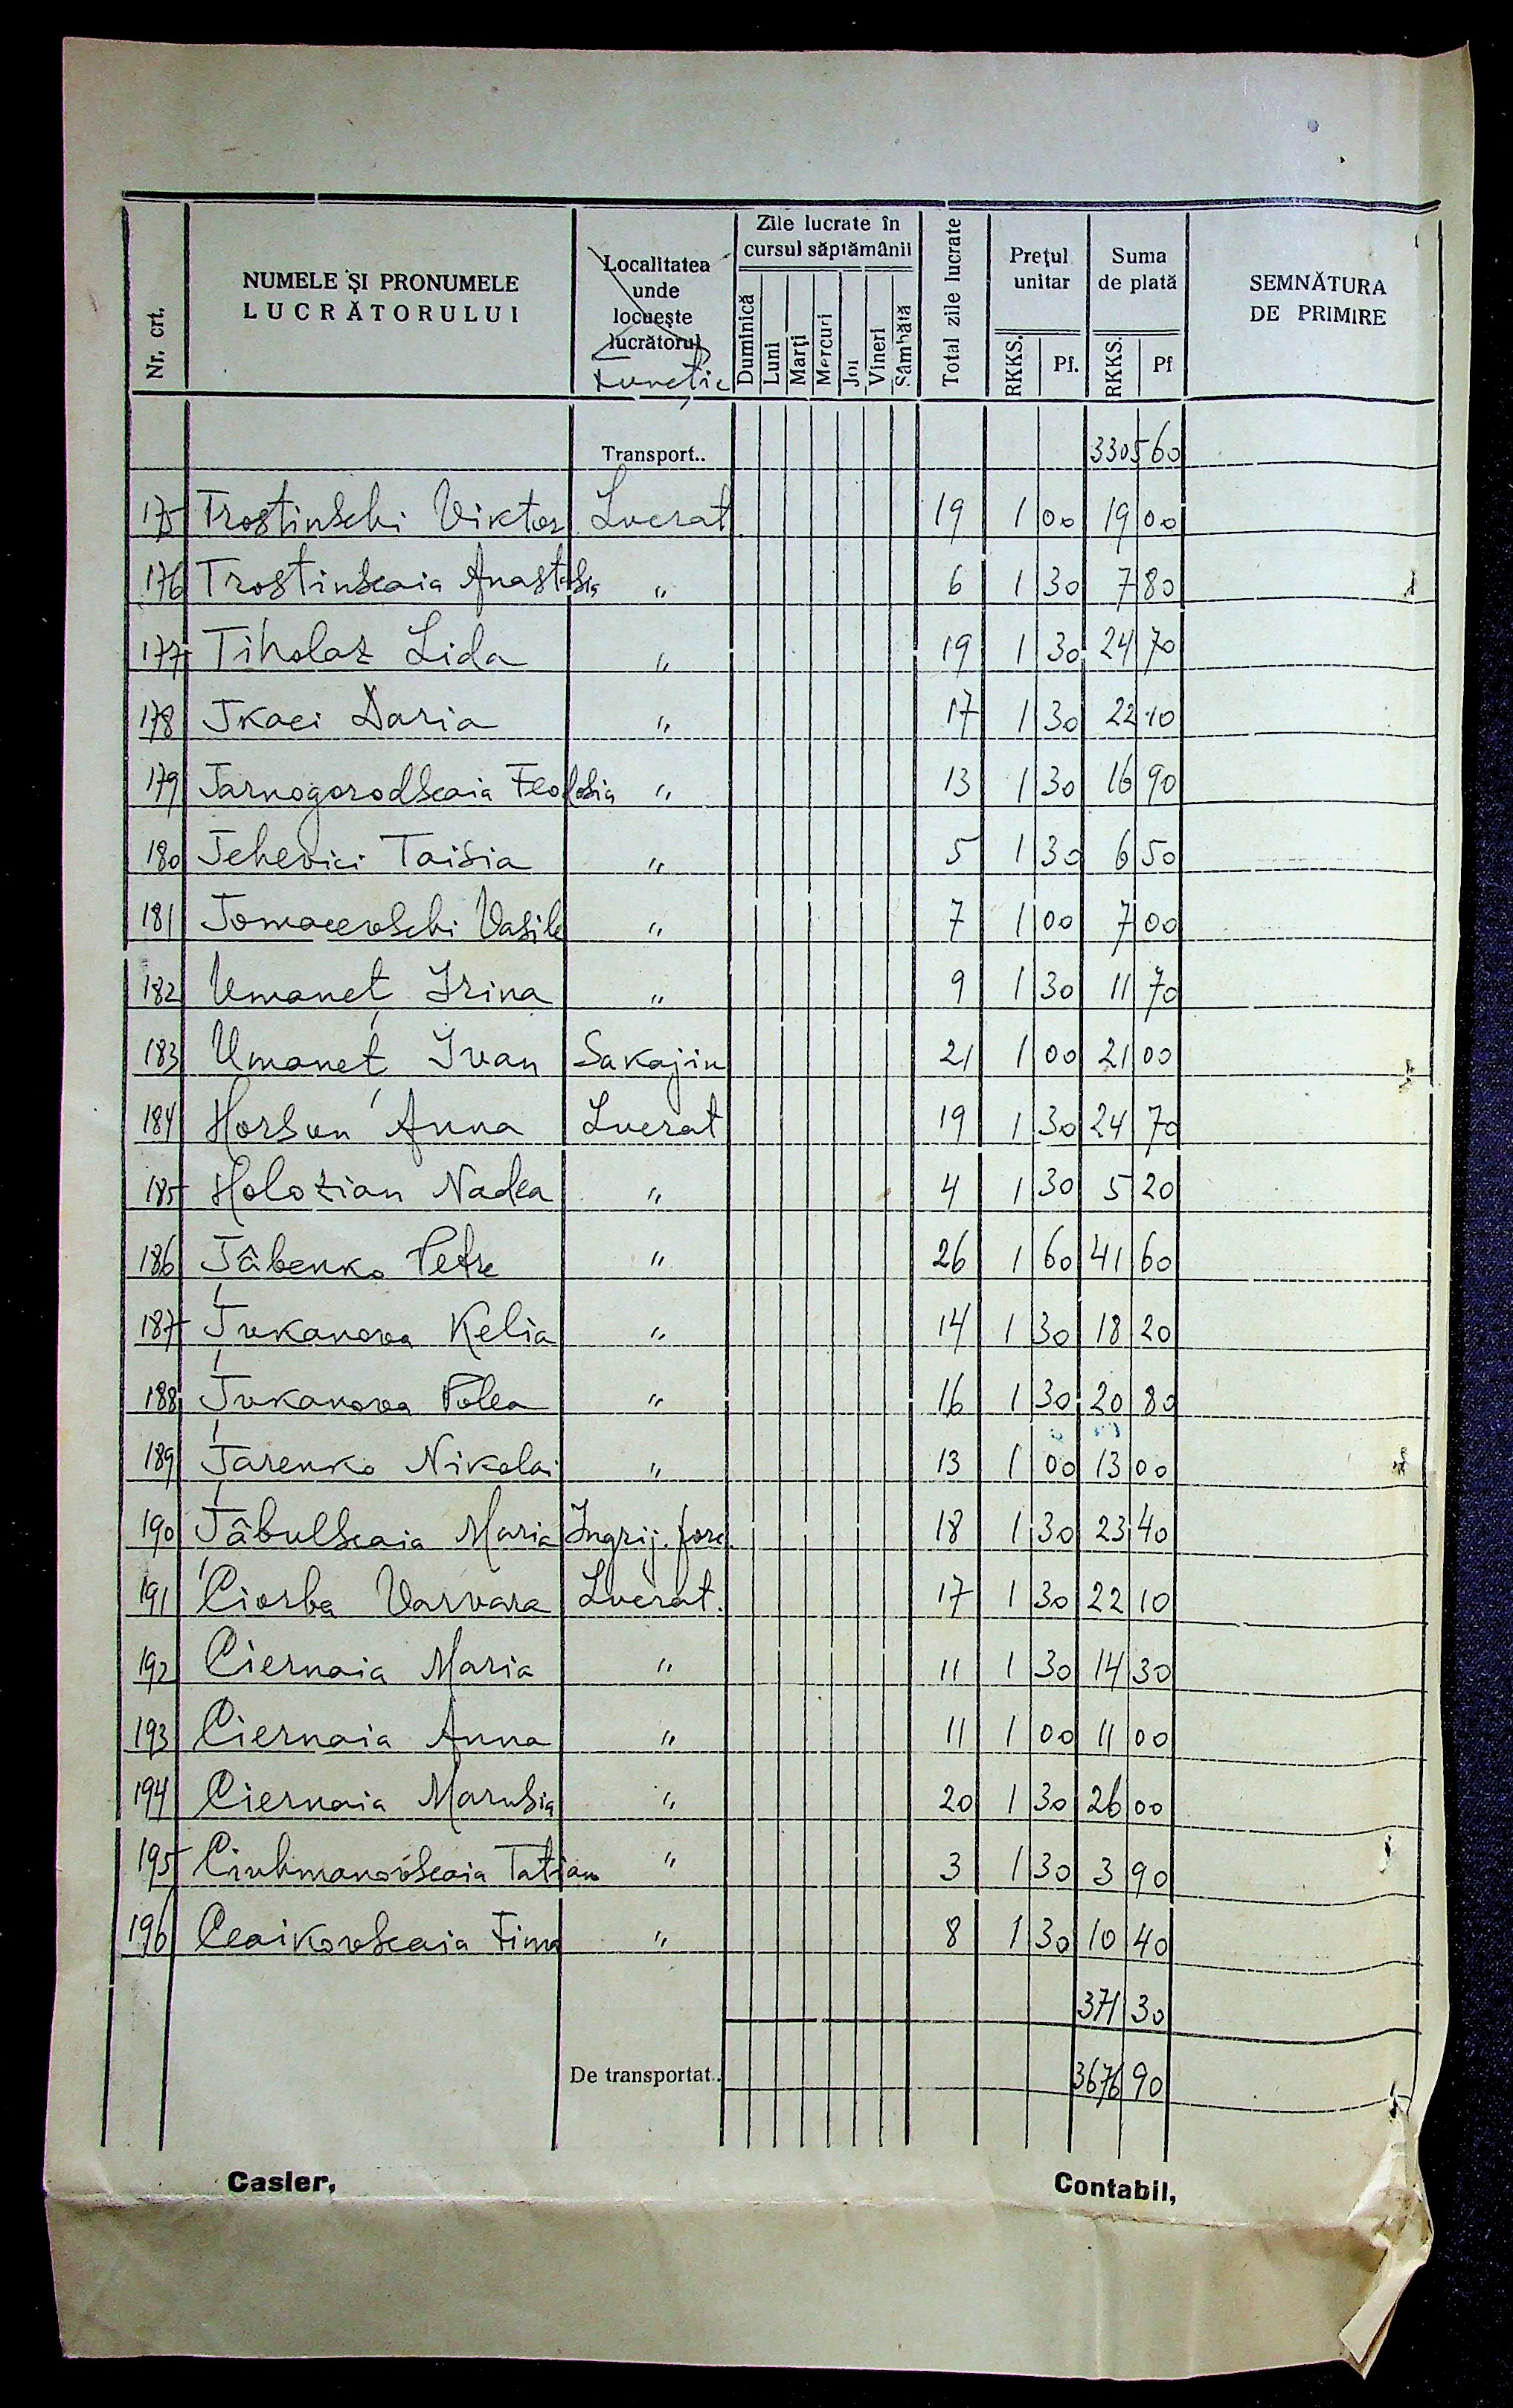 Nr. crt.
NUMELE ȘI PRONUMELE LUCRĂTORULUI
Localitatea unde locuește lucrătorul
Funcția
Zile lucrate în cursul săptămânii
Duminică Luni Marți Mercuri Joi Vineri Sâmbătă
Total zile lucrate
Prețul unitar
RKKS. Pf.
Suma de plată
RKKS. Pf
SEMNĂTURA DE PRIMIRE
Transport.. 3305 60
175 Trostinschi Viktor Lucrat 19 1 00 19 00
176 Trostinscaia Anastasia " 6 1 30 7 80
177 Tiholaz Lida " 19 1 30 24 70
178 Tkaci Daria " 17 1 30 22 10
179 Tarnogorodscaia Feodosia " 13 1 30 16 90
180 Tehevici Taisia " 5 1 30 6 50
181 Tomacevschi Vasile " 7 1 00 7 00
182 Umaneț Irina " 9 1 30 11 70
183 Umaneț Ivan Sakajin 21 1 00 21 00
184 Horsun Anna Lucrat 19 1 30 24 70
185 Holozian Nadea " 4 1 30 5 20
186 Țâbenko Petre " 26 1 60 41 60
187 Țukanova Kelia " 14 1 30 18 20
188 Țukanova Polea " 16 1 30 20 80
189 Țarenko Nikolai " 13 1 00 13 00
190 Țâbulscaia Maria Ingrij. porc. 18 1 30 23 40
191 Ciorba Varvara Lucrat. 17 1 30 22 10
192 Ciernaia Maria " 11 1 30 14 30
193 Ciernaia Anna " 11 1 00 11 00
194 Ciernaia Marusia " 20 1 30 26 00
195 Ciuhmanovscaia Tatiana " 3 1 30 3 90
196 Ceaikovscaia Fima " 8 1 30 10 40
371 30
De transportat.. 3676 90
Casier,
Contabil,